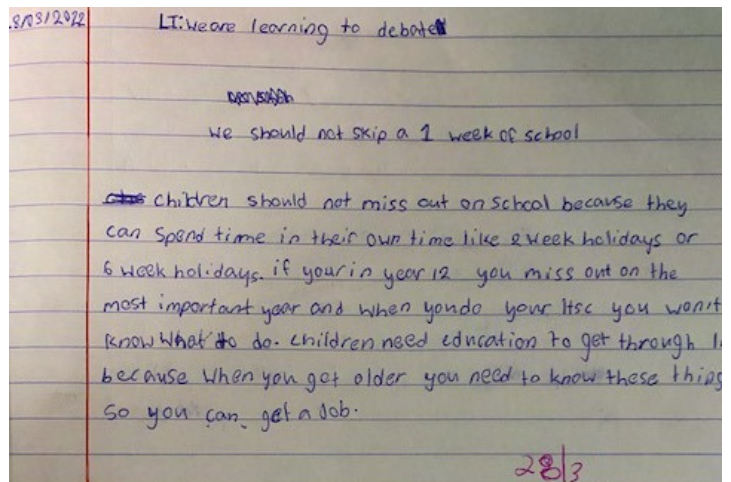 8/03/2022
LI: We are learning to debate
We should not skip a 1 week of school
children should not miss out on school because they
can spend time in their own time like 2 week holidays or
6 week holidays. if your in year 12 you miss out on the
most important year and when you do your Hsc you won't
know what to do. children need education to get through
because when you get older you need to know these thing
so you can get a Job.
28/3